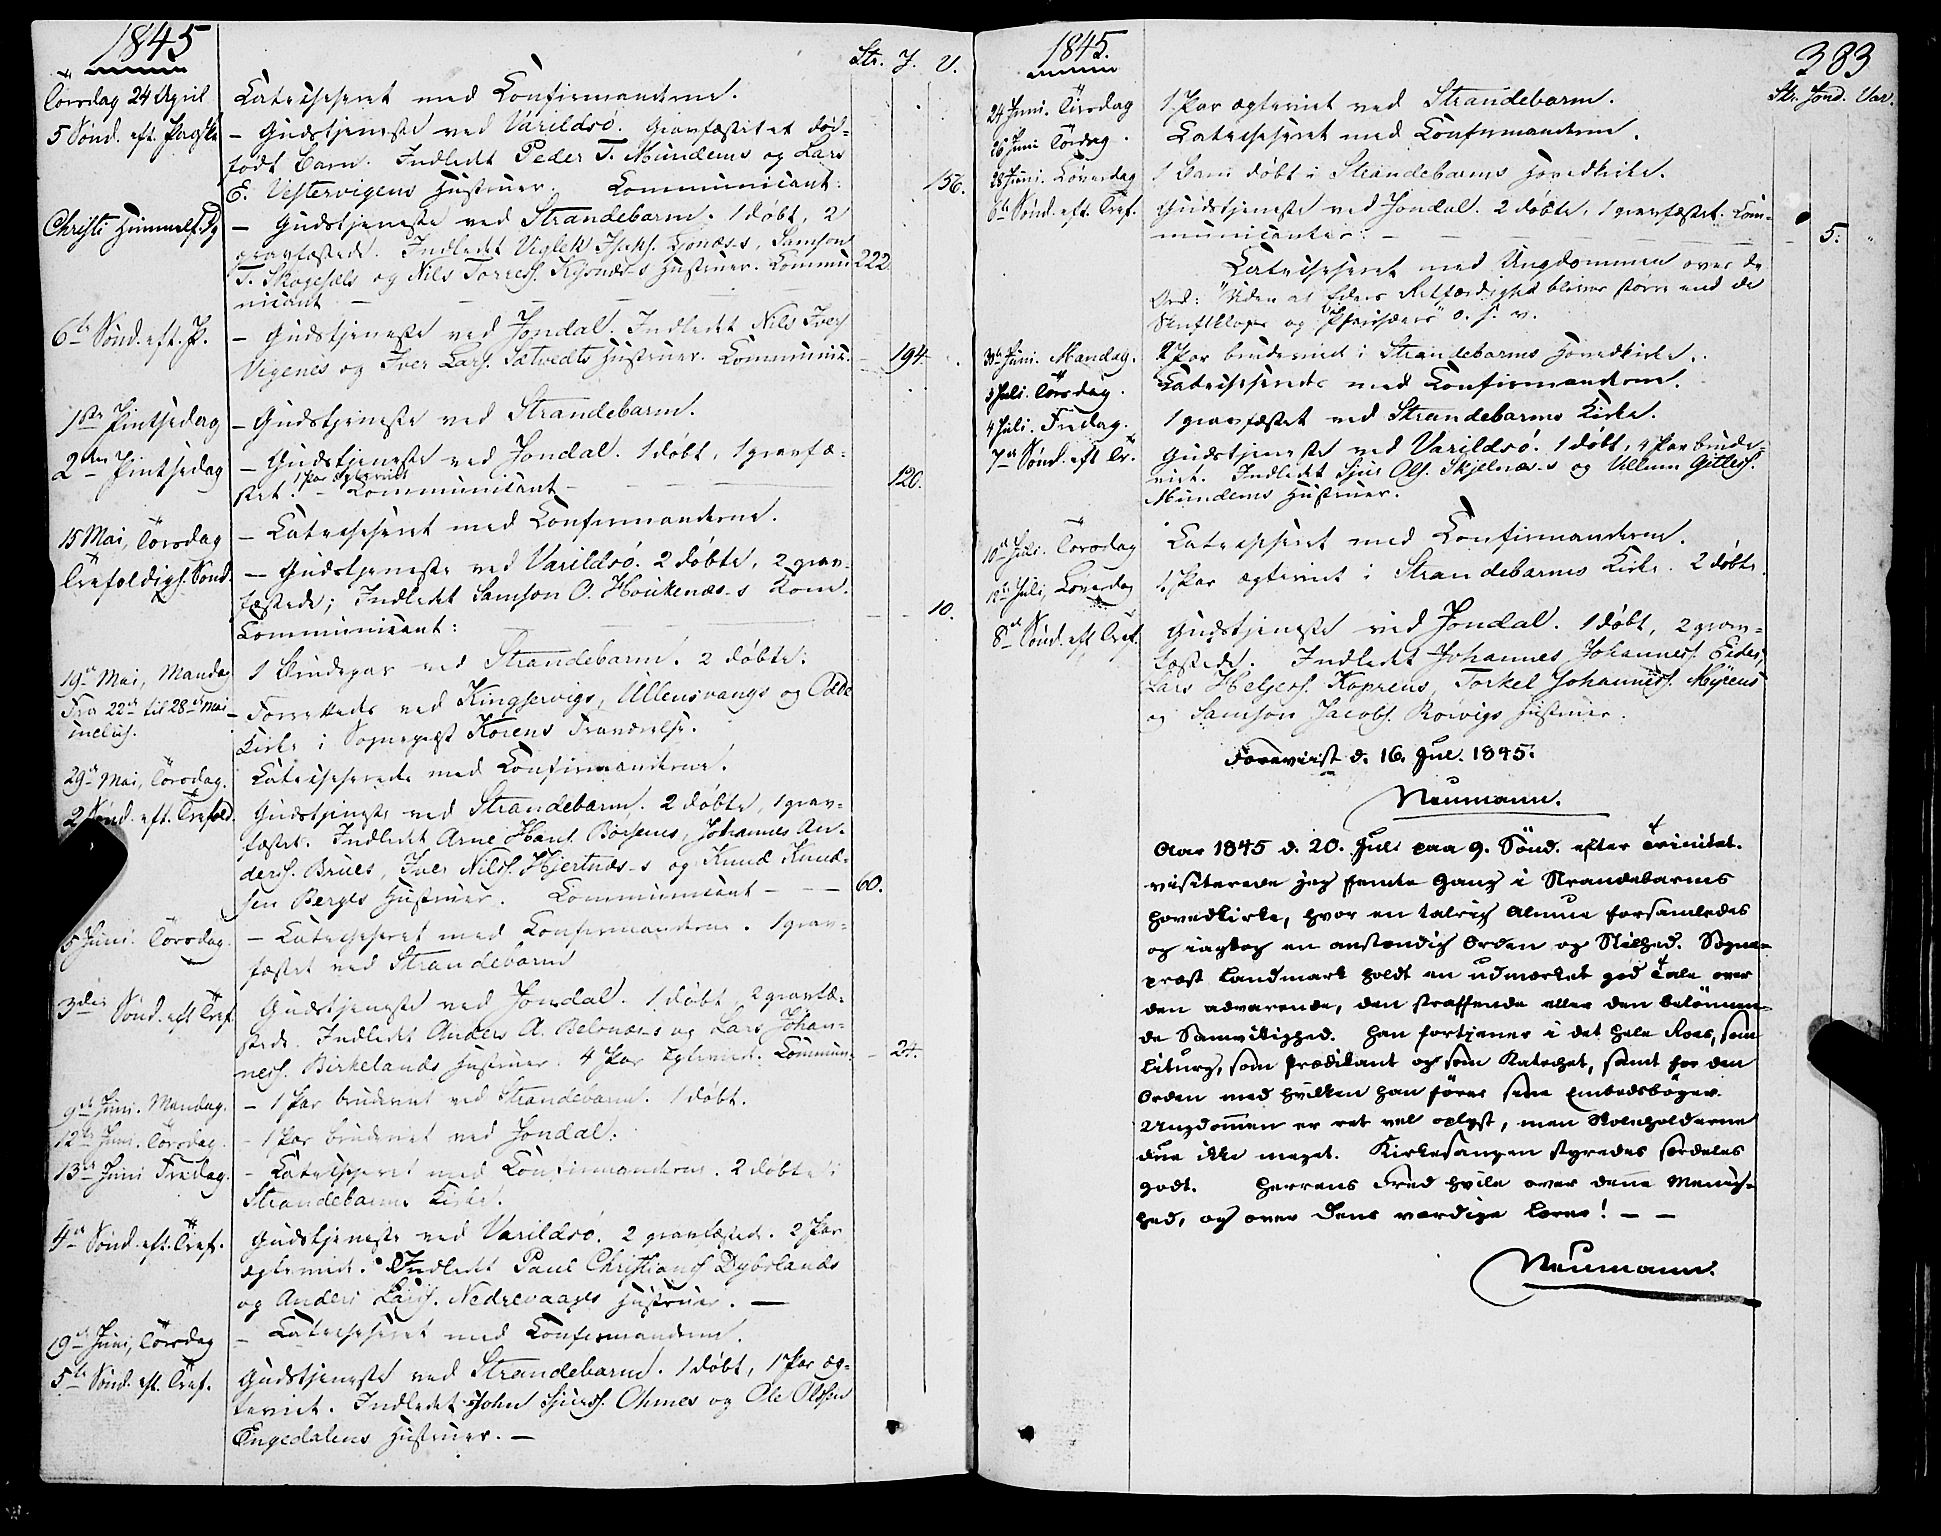 1845
Str. J. V.
Törsdag 24 April Catechiseret med Confirmanderne.
5 Sönd. eft. Paaske – Gudstjeneste ved Varildsö. Gravfæstet et död-
födt Barn. Indledt Peder T. Mundems og Lars
E. Vestervigens Hustruer. Communicant: 156.
Christi Himmelf. Dg – Gudstjeneste ved Strandebarm. 1 döbt, 2
gravfæstede. Indledt Samson
T. Skogesæls og Nils Torress. Hustruer. Commu- 222
nicant – – – –
6te Sönd. eft. P. – Gudstjeneste ved Jondal. Indledt Nils Ivers.
Vigenes og Iver Lars. Sætvedts Hustruer. Communic. – 194.
1ste Pintsedag – Gudstjeneste ved Strandebarm.
2den Pintsedag – Gudstjeneste ved Jondal. 1 döbt, 1 gravfæ-
1 Par ægteviet
stet. – Communicant – – – 120.
15 Mai, Törsdag – Catechiseret med Confirmanderne.
Trefoldigh. Sönd. – Gudstjeneste ved Varildsö. 2 döbte, 2 grav-
fæstede; Indledt Samson O. Houkenæs-s Kone.
Communicant: – – – 10.
19de Mai, Mandag 1 Brudepar ved Strandebarm. 2 döbte.
Fra 22de til 28de Mai – Forrettede ved Kingservigs, Ullensvangs og Odde
inclus. Kirke i Sognepræst Korens Fraværelse.
29de Mai, Törsdag. Catechiserede med Confirmanderne.
2 Sönd. eft. Trefold. Gudstjeneste ved Strandebarm. 2 döbte, 1 grav-
fæstet. Indledt Arne Hans. Johannes An-
derss. Brues, Iver Nilss. Hjertnæs-s og Knud Knud-
sen Berges Hustruer. Communicant – – – 60.
5 Juni. Törsdag. – Catechiseret med Confirmanderne. 1 grav-
fæstet ved Strandebarm
3die Sönd. eft. Tref. Gudstjeneste ved Jondal. 1 döbt, 2 gravfæ-
stede. Indledt Anders A. Belsnæs-s og Lars Johan-
ness. Birkelands Hustruer. 4 Par ægteviet. Commun. – 24.
9de Juni. Mandag. – 1 Par brudeviet ved Strandebarm. 1 döbt.
12te Juni. Törsdag. – 1 Par brudeviet ved Jondal.
13de Juni Fredag. – Catechiseret med Confirmanderne. 2 döbte i
Strandebarms Kirke.
4de Sönd. eft. Tref. Gudstjeneste ved Varildsö. 2 gravfæstede. 2 Par
ægteviede. Indledt Paul Christians. Dybslands
og Anders Larss. Nedrevaages Hustruer. –
19de Juni, Törsdag – Catechiseret med Confirmanderne.
5te Sönd. eft. Tref. Gudstjeneste ved Strandebarm. 1 döbt, 1 Par æg-
teviet. Indledt John Sjurss. Ohmes og Ole Olsen
Engedalens Hustruer. –
1845. 383
Str. Jond. Var.
24 Juni. Tirsdag 1 Par ægteviet ved Strandebarm.
26 Juni Törsdag. Catechiseret med Confirmanderne.
28 Juni. Löverdag 1 Barn döbt i Strandebarms Hovedkirke.
6te Sönd. eft. Tref. Gudstjeneste ved Jondal. 2 döbte, 1 gravfæstet. Com-
municanter: – – – – 5.
Catechiseret med Ungdommen over de
Ord: "Uden at Eders Retfærdighed bliver större end de
Skriftkloges og Pharisæers" o. s. v.
30te Juni. Mandag. 2 Par brudeviet i Strandebarms Hovedkirke.
3 Juli. Törsdag. Catechiserede med Confirmanderne.
4 Juli. Fredag. 1 gravfæstet ved Strandebarms Kirke.
7de Sönd. eft. Tr. Gudstjeneste ved Varildsö. 1 döbt, 4 Par brude-
viet. Indledt Sjur Ols. Skjelnæs-s og Villum Gitless.
Mundems Hustruer.
10de Juli. Törsdag Catechiseret med Confirmanderne.
12te Juli, Löverdag 1 Par ægteviet i Strandebarms Kirke. 2 döbte.
8de Sönd. eft. Tref. Gudstjeneste ved Jondal. 1 döbt, 2 grav-
fæstede. Indledt Johannes Johanness. Eides,
Lars Helgess. Koprens, Torkel Johanness. Myrens
og Samson Jacobs. Roivigs Hustruer.
Foreviist d. 16. Jul. 1845.
Neumann.
Aar 1845 d. 20. Juli paa 9. Sönd. efter Trinitat.
visiterede jeg femte Gang i Strandebarms
Hovedkirke, hvor en talrig Almue forsamledes
og iagtog en anstændig Orden og Stilhed. Sogne-
præst Landmark holdt en udmærket god Tale over
den advarende, den straffende eller den belönnen-
de Samvittighed. Han fortjener i det Hele Roes, som
Liturg, som Prædikant og som Katechet, samt for den
Orden med hvilken han förer sine Embedsböger.
Ungdom̅en er ret vel oplyst, men Skoleholderne
due ikke meget. Kirkesangen styredes særdeles
godt. Herrens Fred hvile over den̅e Menig-
hed, og over dens værdige Lærer! – –
Neumann.